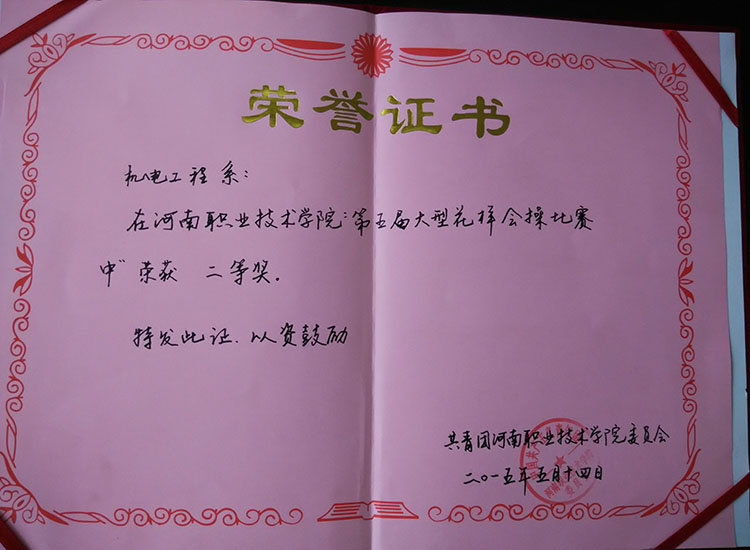 荣誉证书
机电工程系：
在河南职业技术学院：第五届大型花样会操比赛
中"荣获 二等奖.
特发此证.以资鼓励
共青团河南职业技术学院委员会
二〇一五年五月十四日